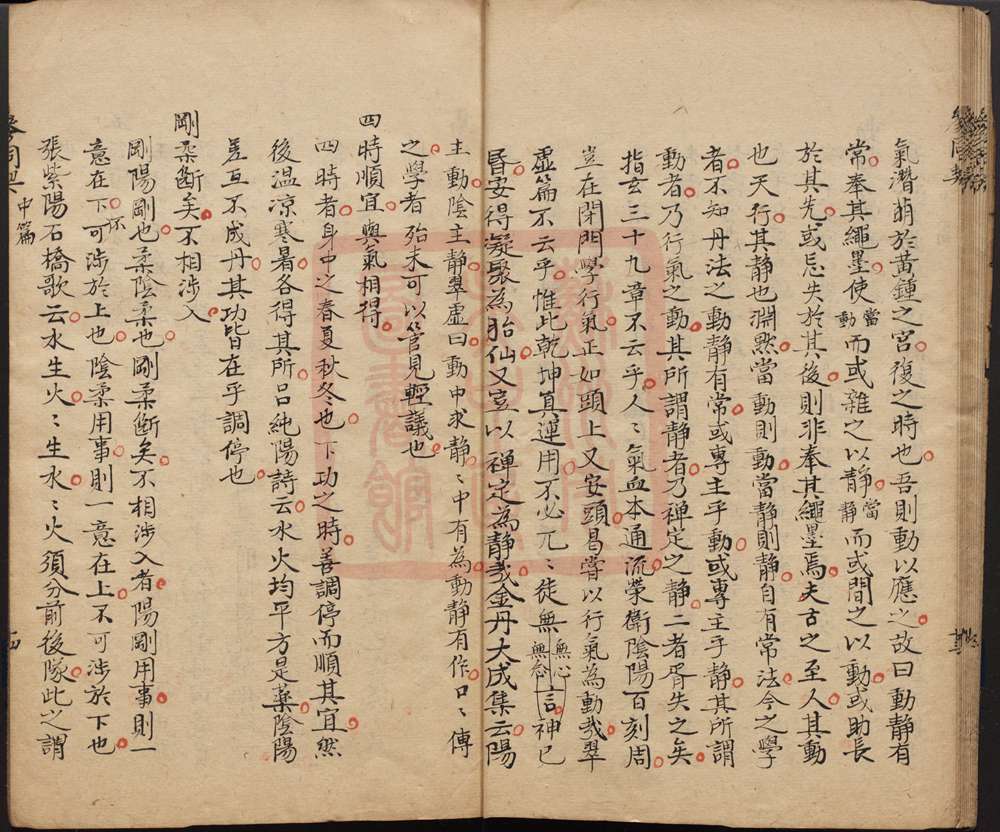 氣潛萌於黃鍾之宮復之時也吾則動以應之故曰動靜有
常奉其繩墨使當動而或雜之以靜當靜而或間之以動或助長
於其先或忘失於其後則非奉其繩墨焉夫古之至人其動
也天行其静也淵默當動則動當静則静自有常法今之學
者不知丹法之動静有常或專主乎動或專主乎静其所謂
動者乃行氣之動其所謂静者乃禅定之静二者胥失之矣
指玄三十九章不云乎人〻氣血本通流榮衛陰陽百刻周
豈在閉門學行氣正如頭上又安頭曷嘗以行氣為動哉翠
虛篇不云乎惟此乾坤真運用不必兀〻徒無言無心無念神已
昏安得凝聚為胎仙又豈以禅定為静哉金丹大成集云陽
主動陰主静翠虛曰動中求静〻中有為動静有作口〻傳
之學者殆未可以管見輕議也
四時順宜與氣相得
四時者身中之春夏秋冬也下功之時善調停而順其宜然
後温凉寒暑各得其所呂純陽詩云水火均平方是藥陰陽
差互不成丹其功皆在乎調停也
剛柔斷矣不相涉入
剛陽剛也柔陰柔也剛柔斷矣不相涉入者陽剛用事則一
意在下不可涉於上也陰柔用事則一意在上不可涉於下也
張紫陽石橋歌云水生火〻生水〻火須分前後隊此之謂
參同契 中篇